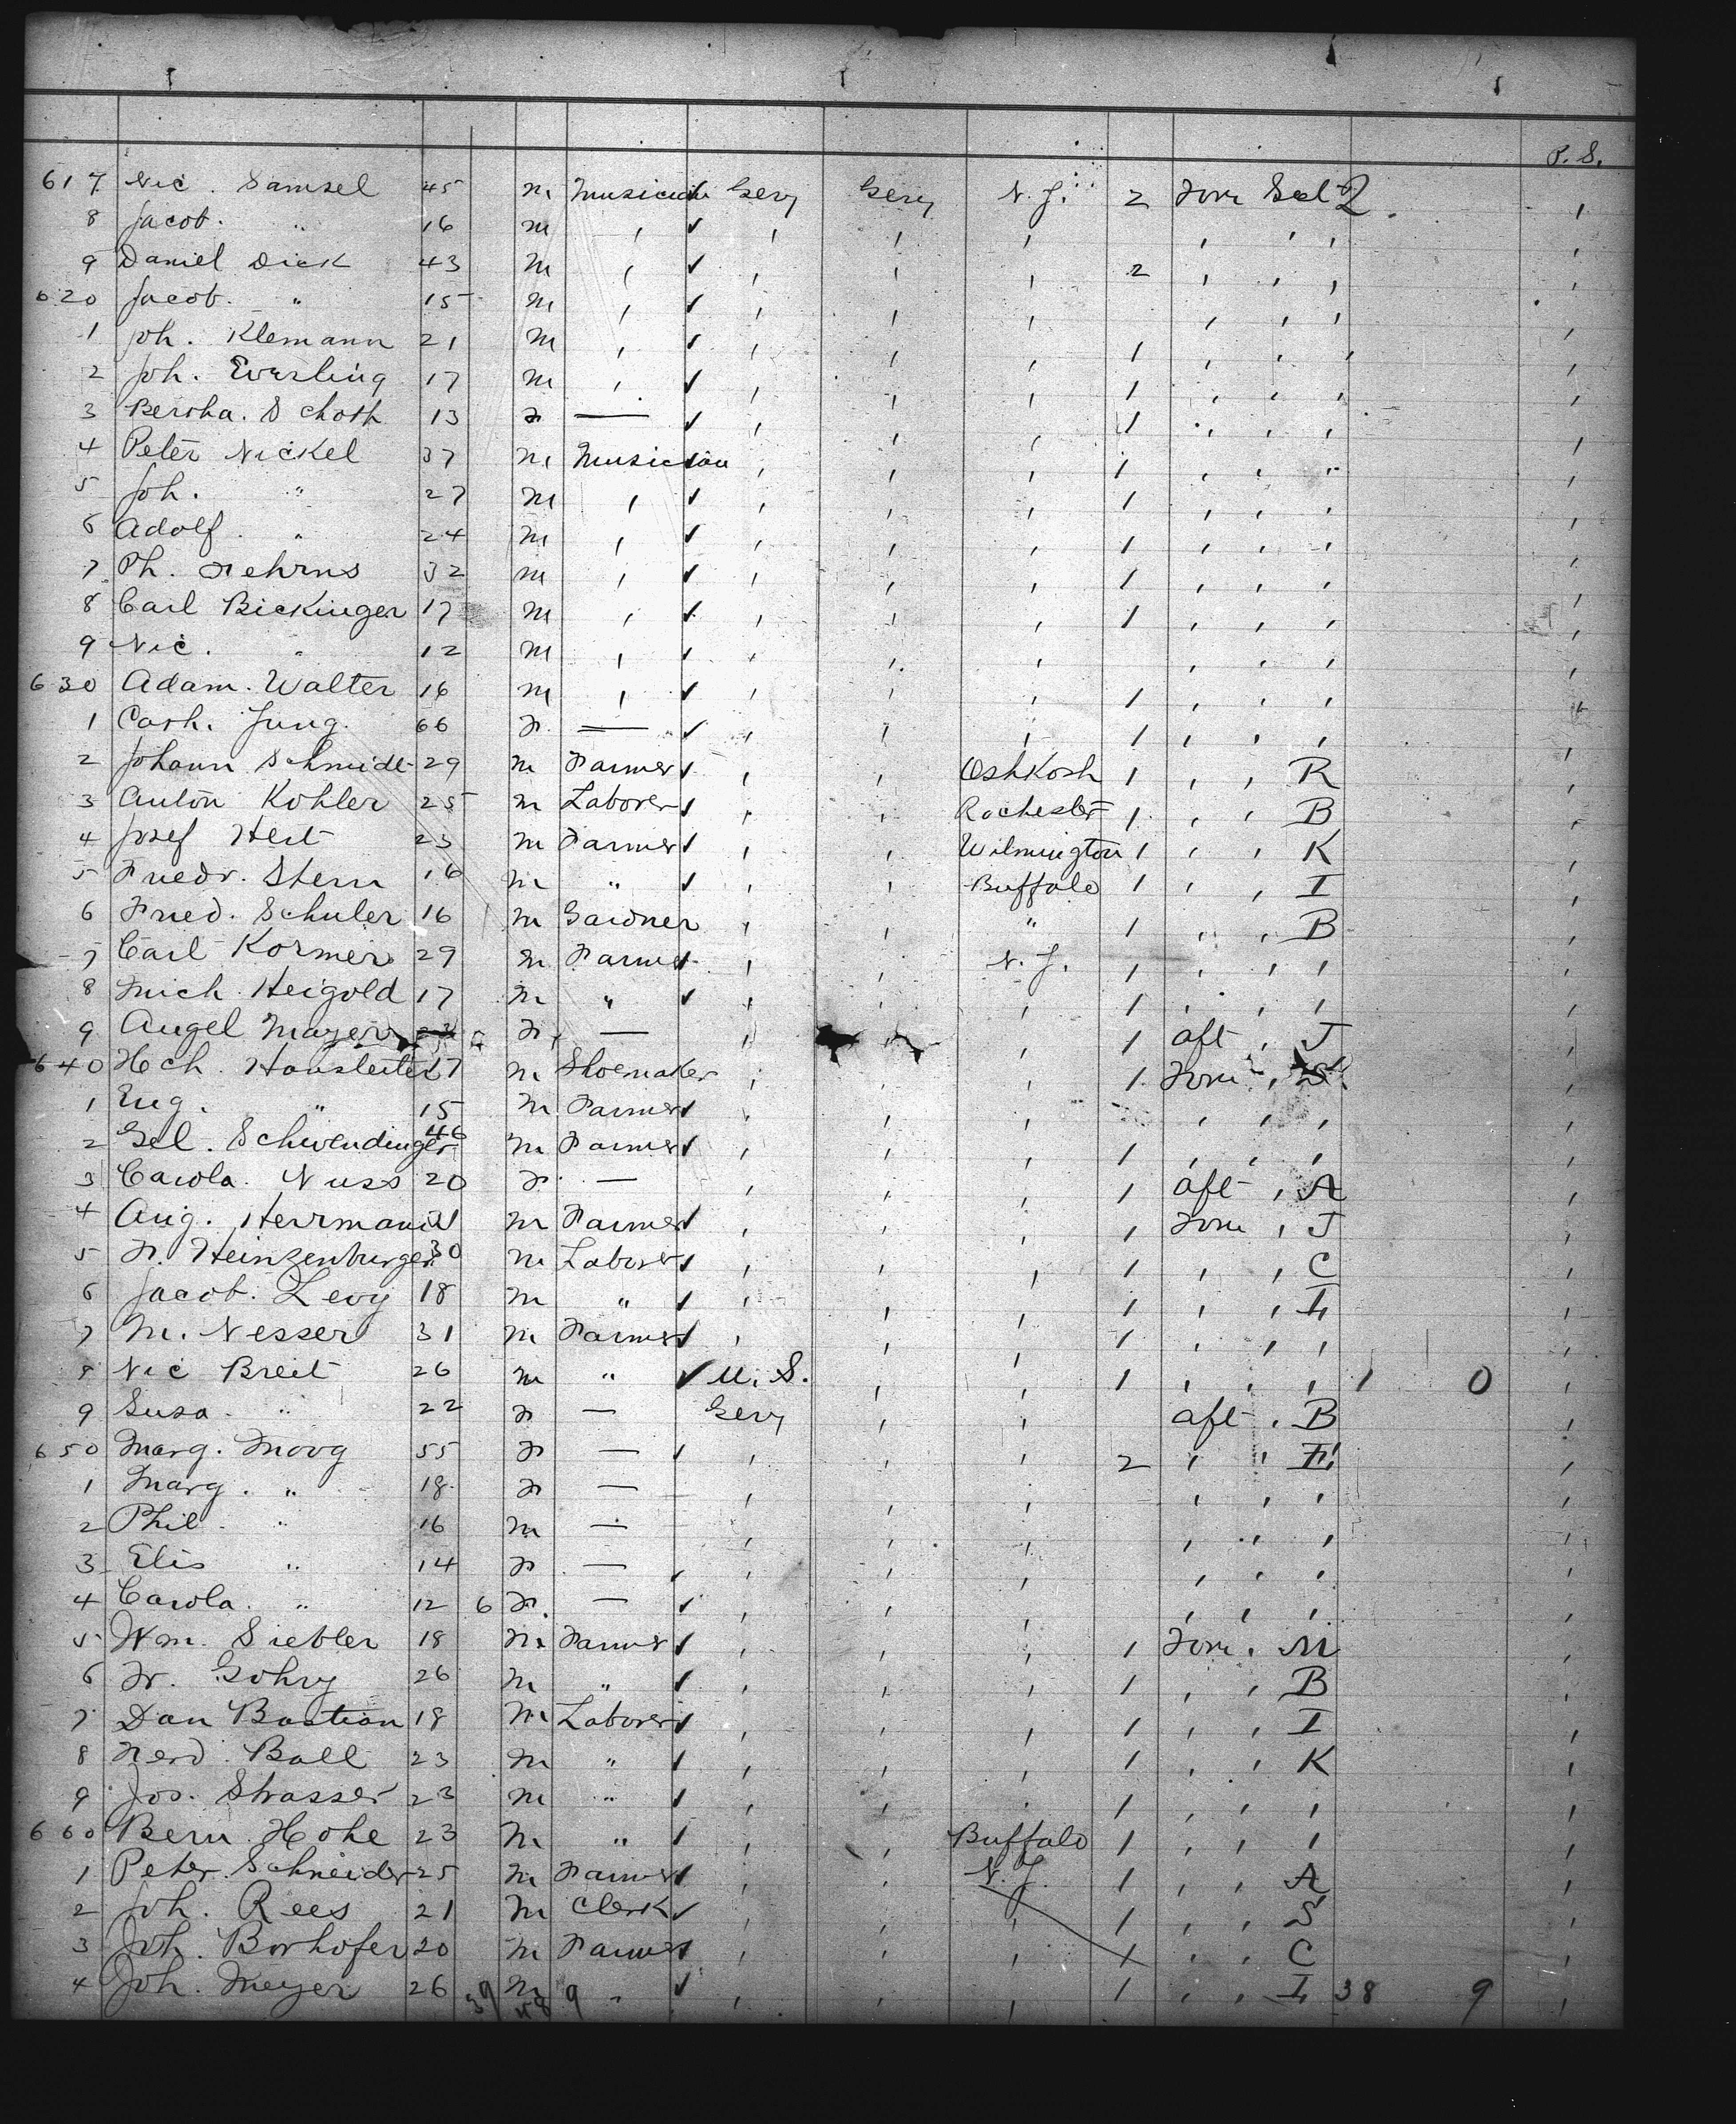 P. S.
617 Nic. Samsel 45 m Musician Gery Gery N.J. 2 Forw Sal 2
8 Jacob. " 16 m , ✓ , , , , , , ,
9 Daniel Dick 43 m , ✓ , , , 2 , , , ,
620 Jacob. " 15 m , ✓ , , , , , , ,
1 Joh. Klemann 21 m , ✓ , , , 1 , , , ,
2 Joh. Everling 17 m , ✓ , , , 1 , , , ,
3 Bertha. Schoth 13 F — ✓ , , , 1 , , , ,
4 Peter Nickel 37 m Musician , , , 1 , , , ,
5 Joh. " 27 m , ✓ , , , 1 , , , ,
6 Adolf. " 24 m , ✓ , , , 1 , , , ,
7 Ph. Fehrns 32 m , ✓ , , , 1 , , , ,
8 Carl Bickinger 17 m , ✓ , , , 1 , , , ,
9 Nic. " 12 m , ✓ , , , , , , ,
630 Adam. Walter 16 m , ✓ , , , 1 , , , ,
1 Cath. Jung. 66 F. — ✓ , , , 1 , , , ,
2 Johann Schmidt 29 m Farmer ✓ , , Oshkosh 1 , , R ,
3 Anton Kohler 25 m Laborer ✓ , , Rochester 1 , , B ,
4 Josef Heit 23 m Farmer ✓ , , Wilmington 1 , , K ,
5 Friedr. Stern 16 m " ✓ , , Buffalo 1 , , I ,
6 Fried. Schuler 16 m Gardner , , " 1 , , B ,
7 Carl Kormer 29 m Farmer ✓ , , N.J. 1 , , , ,
8 Mich. Heigold 17 m " ✓ , , , 1 , , , ,
9 Angel Mayer F — , , 1 aft , J ,
640 Hch. Hausleiter 17 m Shoemaker , , , 1 Forw , S ,
1 Eug. " 15 m Farmer ✓ , , , , , , ,
2 Gel. Schwendinger 46 m Farmer ✓ , , , 1 , , , ,
3 Carola. Nuss 20 F. — , , , 1 aft , A ,
4 Aug. Herrmann 21 m Farmer ✓ , , , 1 Forw , J ,
5 F. Heinzenburger 30 m Laborer ✓ , , , 1 , , C ,
6 Jacob. Levy 18 m " ✓ , , , 1 , , L ,
7 M. Nesser 31 m Farmer ✓ , , , 1 , , , ,
8 Nic Breit 26 m " ✓ U. S. , , 1 , , , 1 0 ,
9 Susa. " 22 F — Gery , , aft , B ,
650 Marg. Moog 55 F — ✓ , , , 2 , " E ,
1 Marg. " 18 F — , , , , , , ,
2 Phil. " 16 m — , , , , " , ,
3 Elis " 14 F — , , , , , , , ,
4 Carola. " 12 6 F. — ✓ , , , , , , ,
5 Wm. Siebler 18 m Farmer ✓ , , , 1 Forw , M ,
6 Fr. Gohry 26 m " ✓ , , , 1 , , B ,
7 Dan Bastian 18 m Laborer ✓ , , , 1 , , I ,
8 Ferd. Ball 23 m " ✓ , , , 1 , , K ,
9 Jos. Strasser 23 m " ✓ , , , 1 , , , ,
660 Bern. Hohe 23 m " ✓ , , Buffalo 1 , , , ,
1 Peter. Schneider 25 m Farmer ✓ , , N.J. 1 , , A ,
2 Joh. Rees 21 m Clerk ✓ , , , 1 , , S ,
3 Joh. Borhofer 20 m Farmer ✓ , , , 1 , , C ,
4 Joh. Meyer 26 m " ✓ , , , 1 , , L 38 9 ,
39 48 9